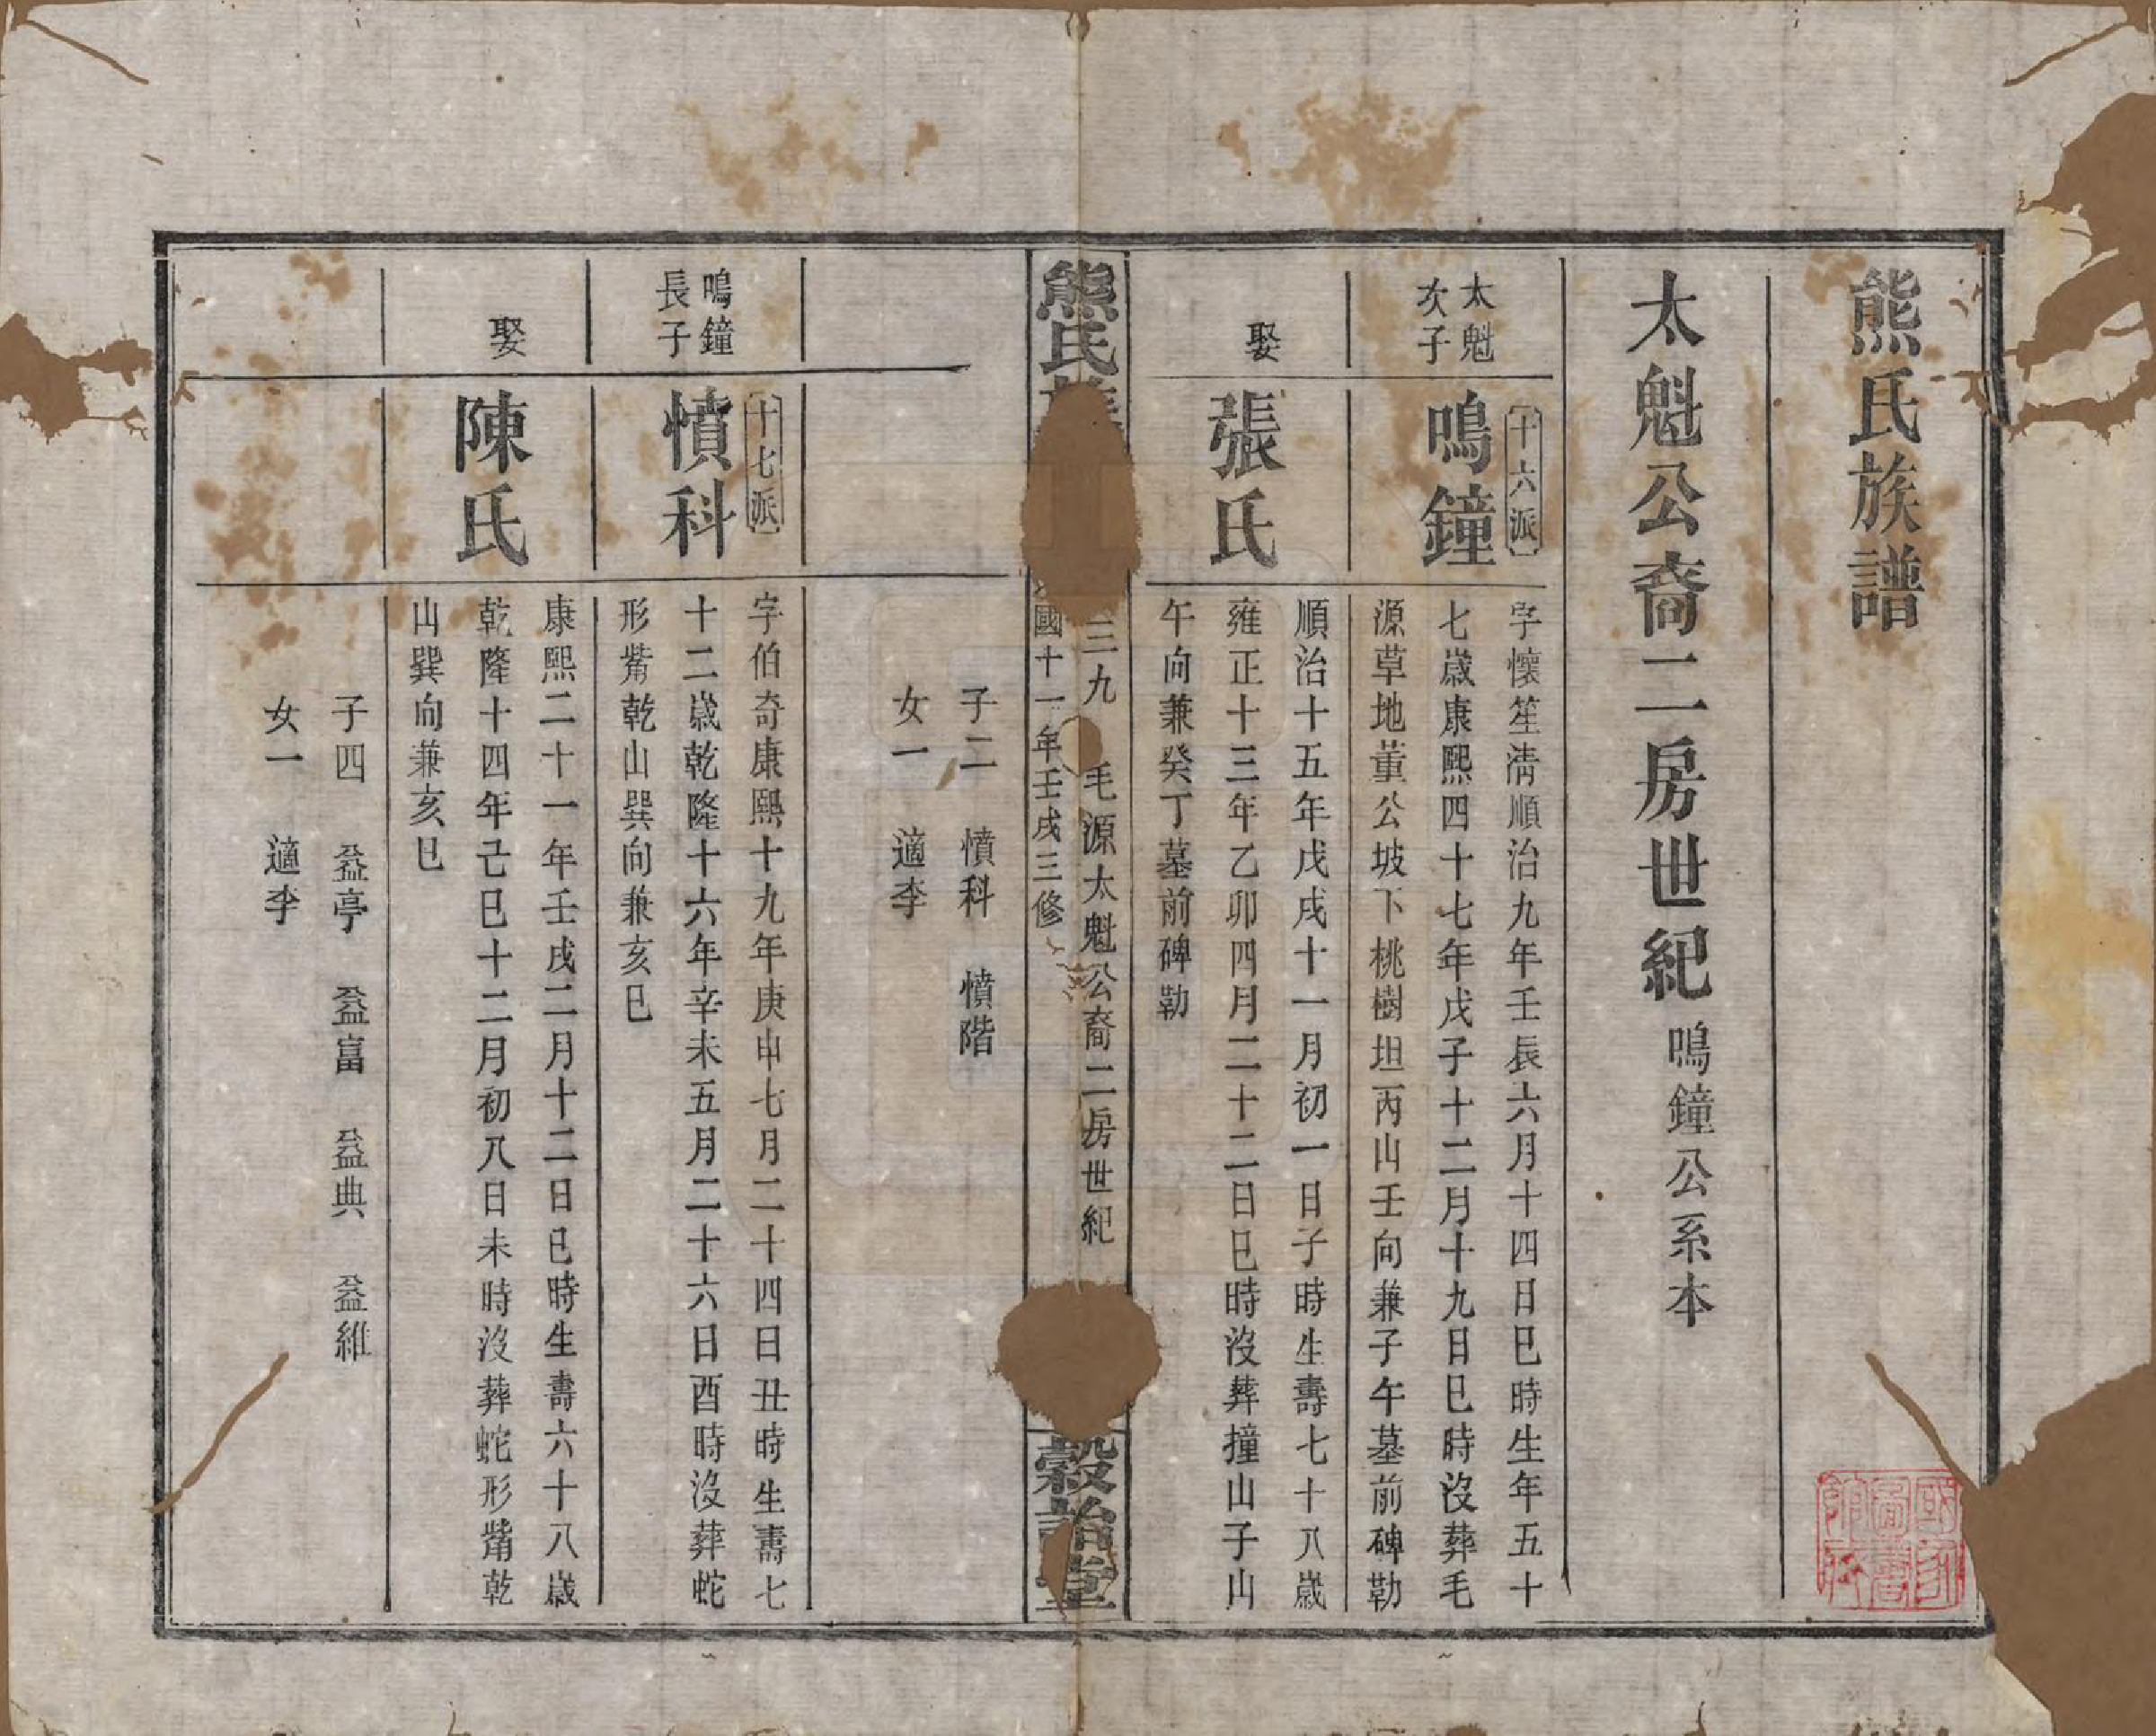 熊氏族譜
太魁公裔二房世紀 鳴鐘公系本
太魁
次子
十六派
鳴鐘
字懷笙清順治九年壬辰六月十四日巳時生年五十
七歲康熙四十七年戊子十二月十九日巳時沒葬毛
源草地董公坡下桃樹坦丙山壬向兼子午墓前碑勒
娶
張氏
順治十五年戊戌十一月初一日子時生壽七十八歲
雍正十三年乙卯四月二十二日巳時沒葬撞山子山
午向兼癸丁墓前碑勒
熊氏族
三九 毛源太魁公裔二房世紀
國十一年壬戌三修
穀詒堂
子二 憤科 憤階
女一 適李
鳴鐘
長子
十七派
憤科
字伯奇康熙十九年庚申七月二十四日丑時生壽七
十二歲乾隆十六年辛未五月二十六日酉時沒葬蛇
形觜乾山巽向兼亥巳
娶
陳氏
康熙二十一年壬戌二月十二日巳時生壽六十八歲
乾隆十四年己巳十二月初八日未時沒葬蛇形觜乾
山巽向兼亥巳
子四 益亭 益富 益典 益維
女一 適李